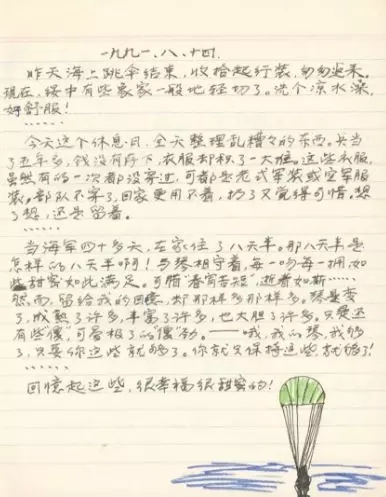 一九九一、八、十四.
昨天海上跳伞结束，收拾起行装，匆匆返来。
现在，绥中有些象家一般地轻切了。洗个凉水澡，
好舒服！
……
今天这个休息日，全天整理乱糟々的东西。兵当
了五年多，钱没有存下，衣服却积了一大堆。这些衣服，
虽然有的一次都没穿过，可都是老式军装或空军服
装。部队不穿了，回家更用不着，扔了又觉得可惜，想
了想，还是留着。
……
当海军四十多天，在家住了八天半。那八天半是
怎样的八天半啊！与琴相守着，每一吻每一拥如
些甜蜜如此满足。可腊"春宵苦短"，逝者如斯……
然而，留给我的回忆，却那样多那样多。琴是变
了，成熟了许多，丰富了许多，也大胆了许多。只是还
有些"傻"，可爱极了的"傻"劲。——哦，我的琴，我够
了，只要你这些就够了。你就只保持这些，就够了！
……
回忆起这些，很幸福很甜蜜的！